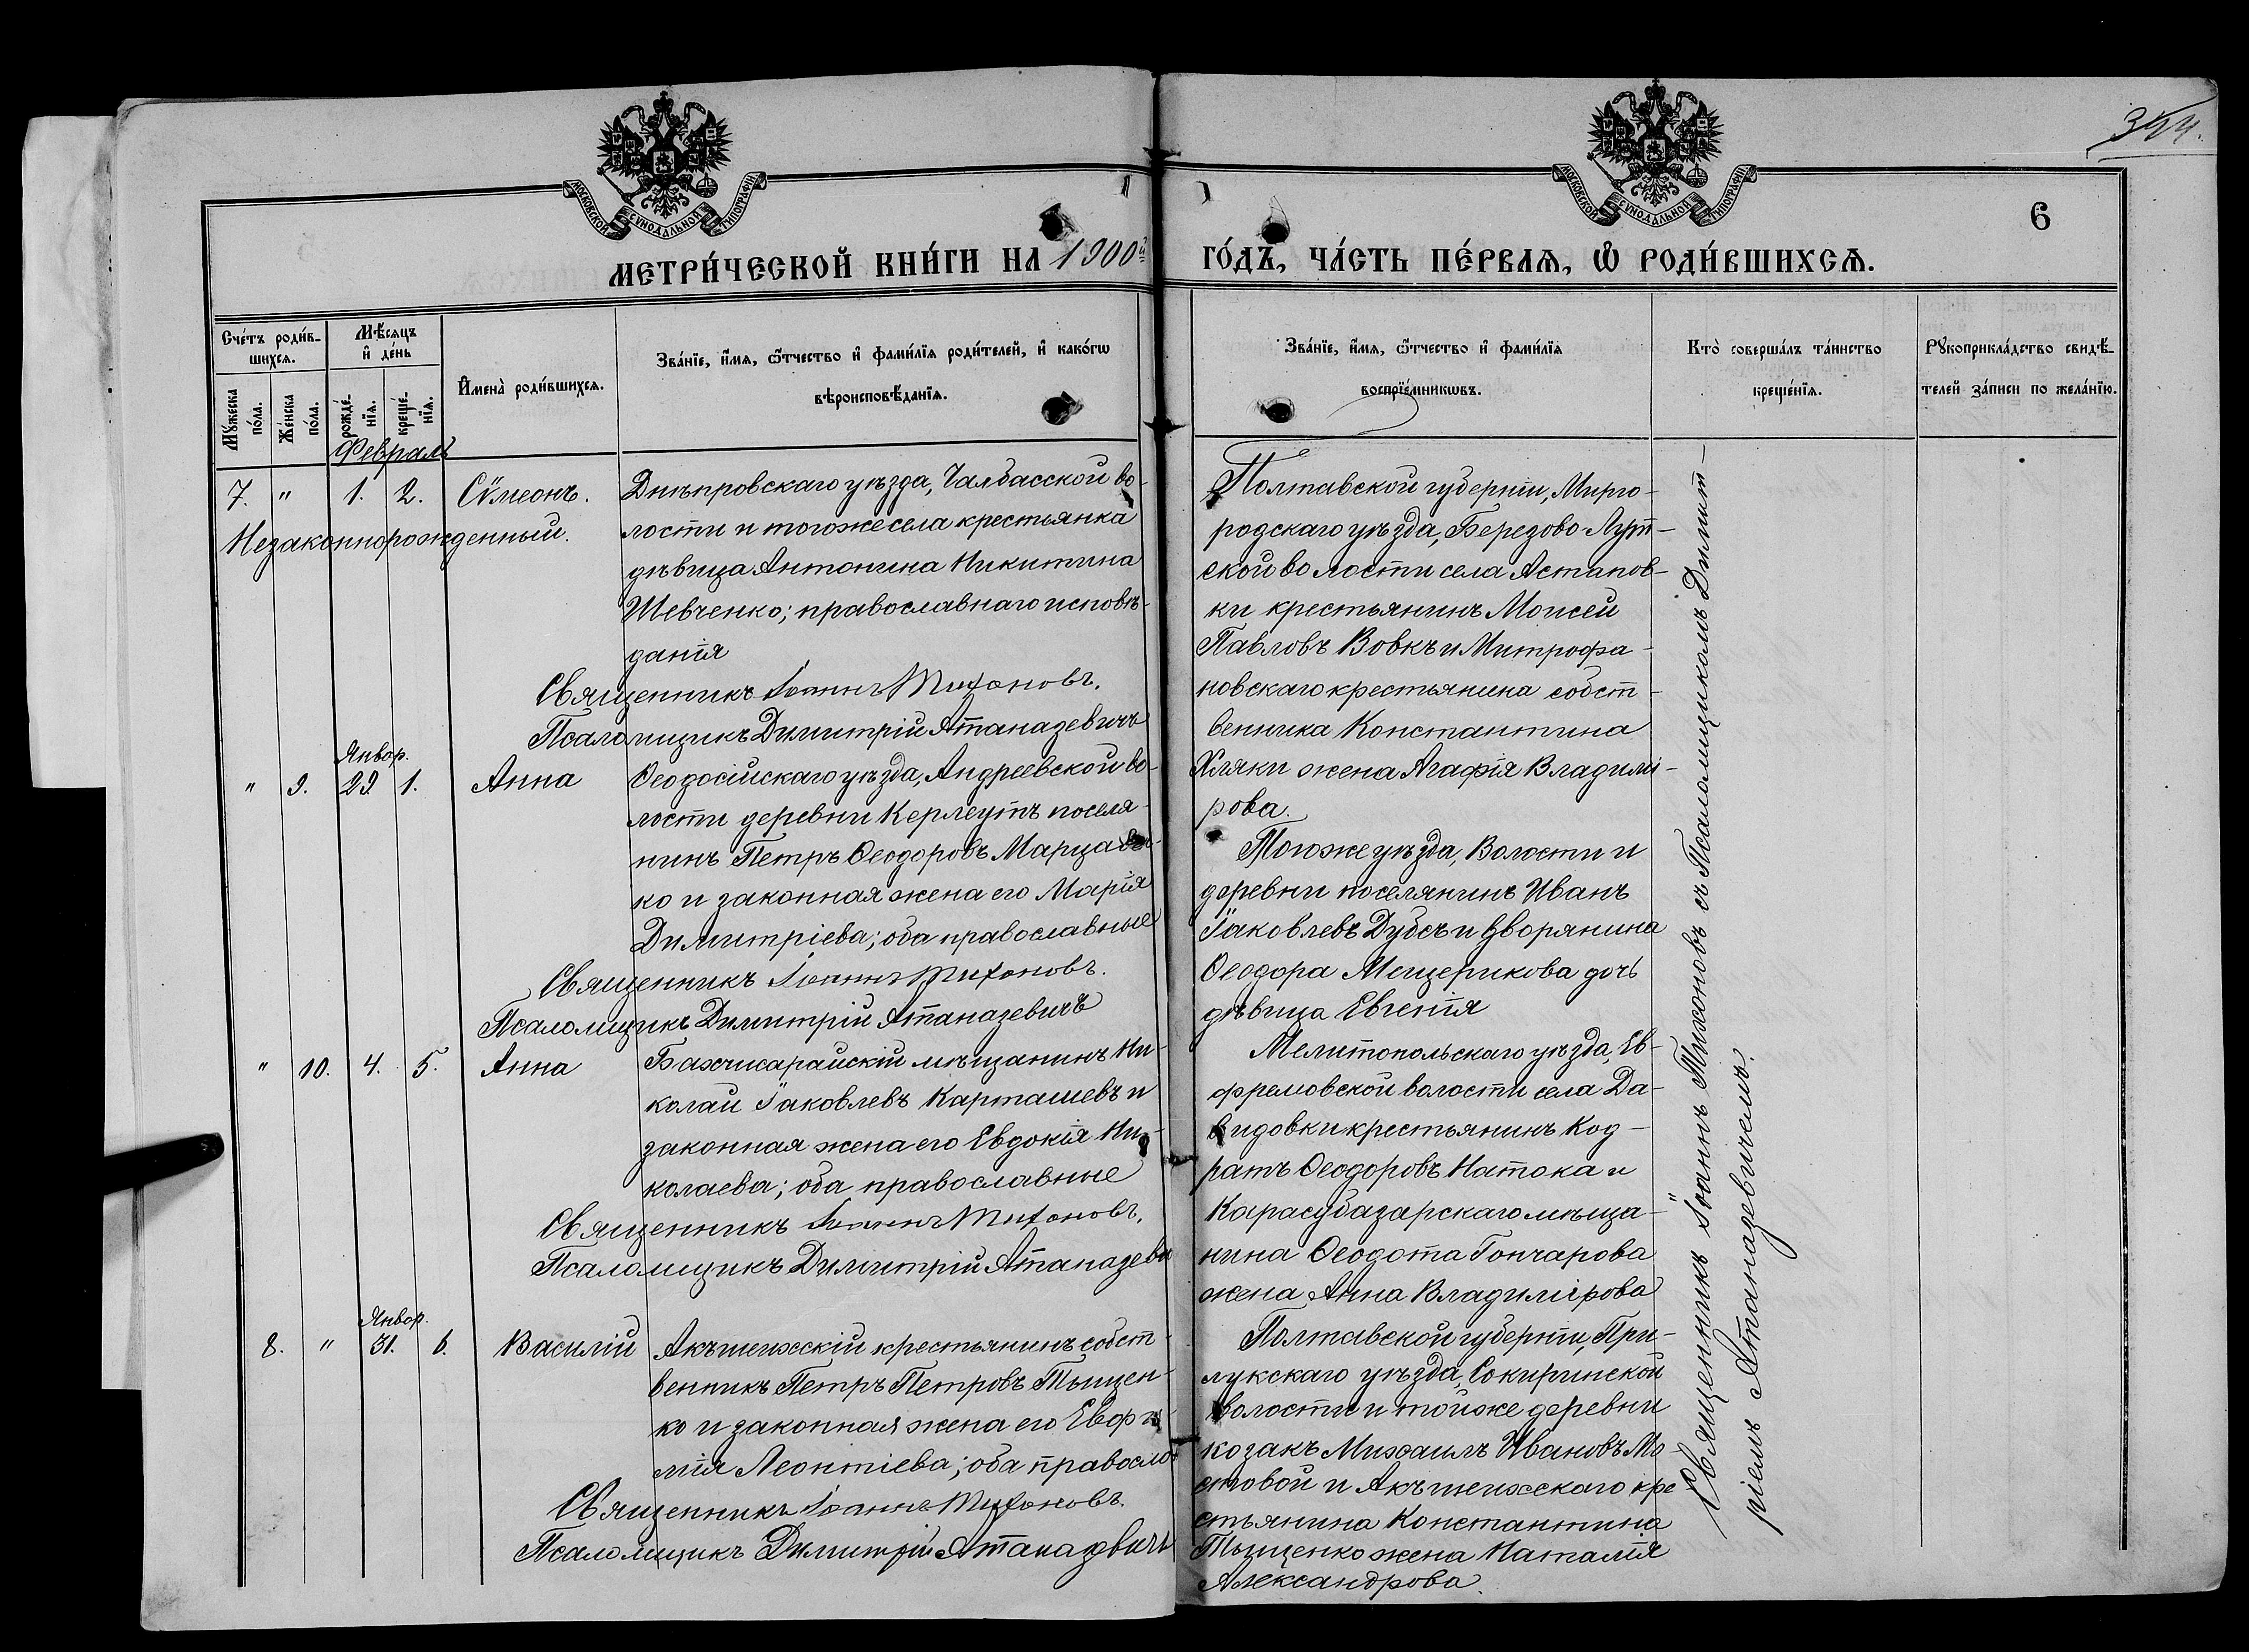 354.
МОСКОВСКОЙ СѴНОДАЛЬНОЙ ТИПОГРАФІИ
МОСКОВСКОЙ СѴНОДАЛЬНОЙ ТИПОГРАФІИ
6
МЕТРИ́ЧЕСКОЙ КНИ́ГИ НА 1900й ГО́ДЪ, ЧА́СТЬ ПЕ́РВАѦ, Ѡ РОДИ́ВШИХСѦ.
Сче́тъ роди́в-
шихсѧ.
Мꙋ́жеска
по́ла.
Же́нска
по́ла.
Мѣ́сяцъ
и҆ де́нь
рожде́-
нїѧ.
креще́-
нїѧ.
И҆мена̀ роди́вшихсѧ.
Зва́нїе, и҆́мѧ, ѻ҆́тчество и҆ фами́лїѧ роди́телей, и҆ како́гѡ
вѣроисповѣ́данїѧ.
Зва́нїе, и҆́мѧ, ѻ҆́тчество и҆ фами́лїѧ
воспрїе́мникѡвъ.
Кто̀ соверша́лъ та́инство
креще́нїѧ.
Рꙋкоприкла́дство свидѣ́-
телей за́писи по жела́нїю.
Февраль
7. " 1. 2. Сѵмеонъ.
Незаконнорожденный.
Днѣпровскаго уѣзда, Чалбасской во-
лости и тогоже села крестьянка
дѣвица Антонина Никитина
Шевченко; православнаго исповѣ-
данія
Священникъ Іоаннъ Тихоновъ.
Псаломщикъ Димитрій Атаназевичъ
Полтавской губерніи, Мирго-
родскаго уѣзда, Березово-Лут-
ской волости села Астапов-
ки крестьянинъ Моисей
Павловъ Вовкъ и Митрофа-
новскаго крестьянина собст-
венника Константина
Хляки жена Агафія Владимі-
рова.
Январ.
" 9. 29. 1. Анна
Ѳеодосійскаго уѣзда, Андреевской во-
лости деревни Керлеутъ поселя-
нинъ Петръ Ѳеодоровъ
ко и законная жена его Марія
Димитріева; оба православные
Священникъ Іоаннъ Тихоновъ.
Псаломщикъ Димитрій Атаназевичъ
Тогоже уѣзда, Волости и
деревни поселянинъ Иванъ
Іаковлевъ Дубсъ и дворянина
Ѳеодора Мещерикова дочь
дѣвица Евгенія
" 10. 4. 5. Анна
Бахчисарайскій мѣщанинъ Ни-
колай Іаковлевъ Карташевъ и
законная жена его Евдокія Ни-
колаева; оба православные
Священникъ Іоаннъ Тихоновъ.
Псаломщикъ Димитрій Атаназеви
Мелитопольскаго уѣзда, Еф-
фремовской волости села Да-
видовки крестьянинъ Код-
ратъ Ѳеодоровъ Натока и
Карасубазарскаго мѣща-
нина Ѳеодота Гончарова
жена Анна Владимірова
Январ.
8. " 31. 6. Василій
Акъшеихскій крестьянинъ собст-
венникъ Петръ Петровъ Тыщен-
ко и законная жена его Евфи-
мія Леонтіева; оба правосла
Священникъ Іоаннъ Тихоновъ.
Псаломщикъ Димитрій Атаназевичъ
Полтавской губерніи, При-
лукскаго уѣзда, Сокиринской
волости и тойже деревни
козакъ Михаилъ Ивановъ Мо-
стовой и Акъшеихскаго кре
стьянина Константина
Тыщенко жена Наталія
Александрова.
Священникъ Іоаннъ Тихоновъ съ Псаломщикомъ Димит-
ріемъ Атаназевичемъ.